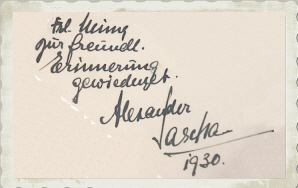 Frl. Heinz
zur freundl.
Erinnerung
gewidmet.
Alexander
Sascha
1930.